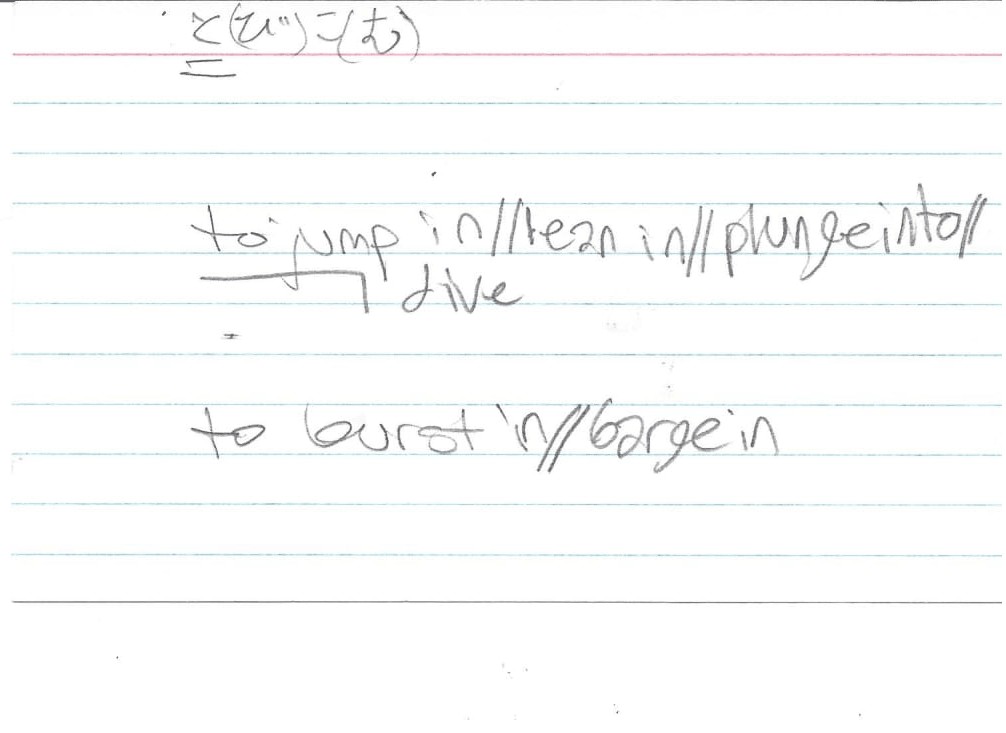 と(び)こ(む)
to jump in//lean in//plunge into//
dive
to burst in//barge in